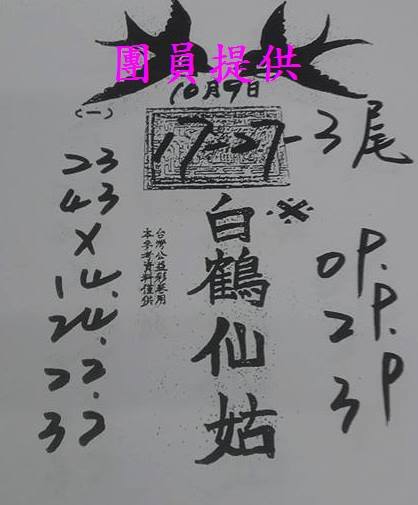 團員提供
10月9日
(一)
17-27-3尾
23
43
X
14.
24.
22.
32
白鶴仙姑
台灣公益彩卷用
本參考資料僅供
0P.
2P.
3P